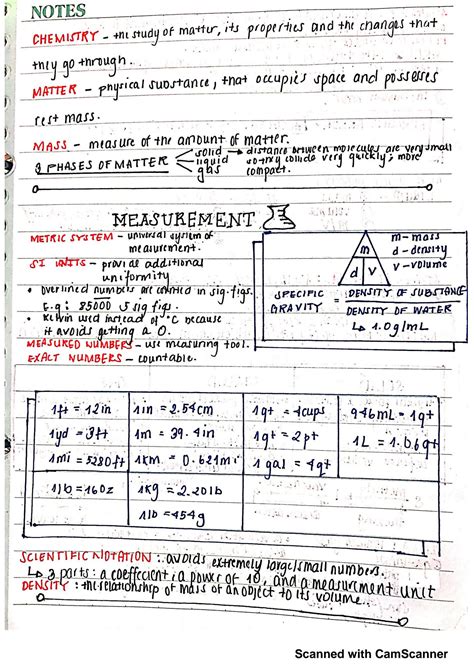 NOTES
CHEMISTRY - the study of matter, its properties and the changes that
they go through.
MATTER - physical substance, that occupies space and possesses
rest mass.
MASS - measure of the amount of matter.
3 PHASES OF MATTER
solid → distance between molecules are very small
liquid so they collide very quickly; more
gas compact.
MEASUREMENT
METRIC SYSTEM - universal system of
measurement.
SI UNITS - provide additional
uniformity
• overlined numbers are counted in sig. figs.
E.g: 85000 5 sig figs.
• Kelvin used instead of °C because
it avoids getting a 0.
MEASURED NUMBERS - use measuring tool.
EXACT NUMBERS - countable.
m
d v
m - mass
d - density
v - volume
SPECIFIC GRAVITY = DENSITY OF SUBSTANCE
DENSITY OF WATER
↳ 1.0g/mL
1ft = 12in 1in = 2.54cm 1qt = 4cups 946mL = 1qt
1yd = 3ft 1m = 39.4in 1qt = 2pt 1L = 1.06qt
1mi = 5280ft 1km = 0.621mi 1gal = 4qt
1lb = 16oz 1kg = 2.20lb
1lb = 454g
SCIENTIFIC NOTATION: avoids extremely large/small numbers.
↳ 3 parts: a coefficient, a power of 10, and a measurement unit
DENSITY: the relationship of mass of an object to its volume.
Scanned with CamScanner